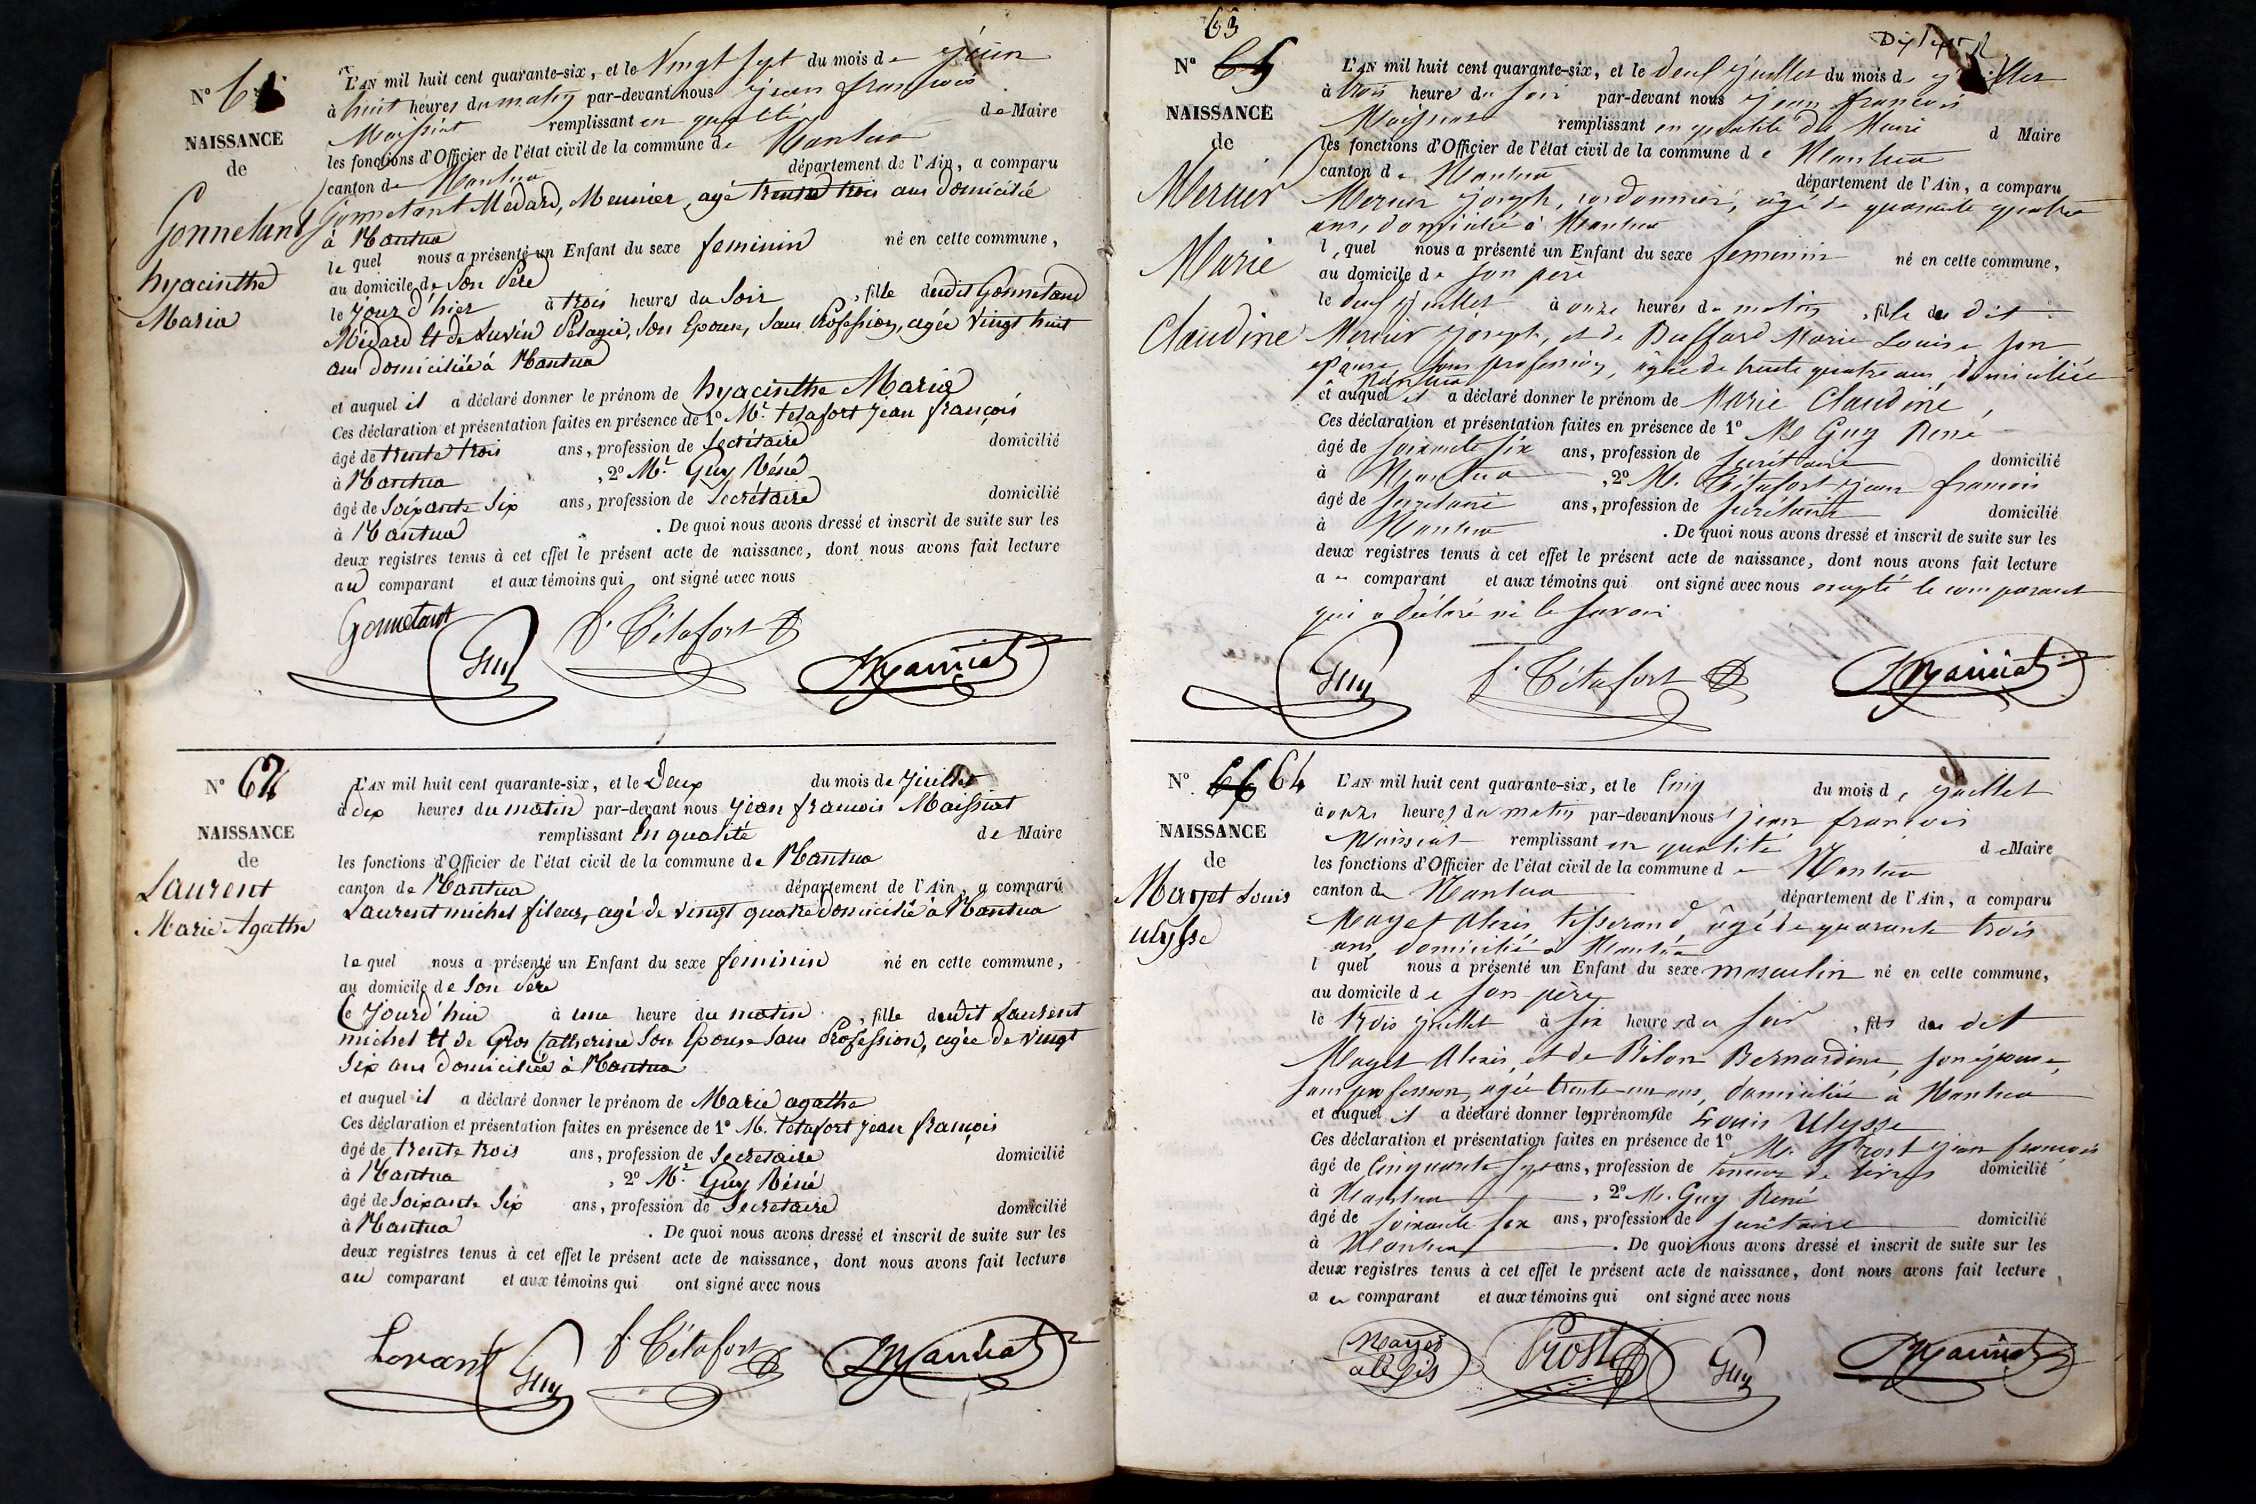 N° 61
NAISSANCE
de
Gonnetant
hyacinthe
Maria
L'AN mil huit cent quarante-six, et le Vingt Sept du mois de juin
à huit heures du matin par-devant nous jean françois
Maissiat remplissant en qualité de Maire
les fonctions d'Officier de l'état civil de la commune de Nantua
canton de Nantua département de l'Ain, a comparu
Gonnetant Médard, Meunier, agé trente trois ans domicilié
à Nantua
le quel nous a présenté un Enfant du sexe feminin né en cette commune,
au domicile de Son Père
le jour d'hier à trois heures du Soir, fille dudit Gonnetand
Médard et de Pelagie, Son Epouse, Sans Profession, agée Vingt huit
ans domiciliée à Nantua
et auquel il a déclaré donner le prénom de hyacinthe Maria
Ces déclaration et présentation faites en présence de 1° Mr. tetafort jean françois
âgé de trente trois ans, profession de Secrétaire domicilié
à Nantua, 2° Mr. Guy Réné
âgé de Soixante Six ans, profession de Secrétaire domicilié
à Nantua. De quoi nous avons dressé et inscrit de suite sur les
deux registres tenus à cet effet le présent acte de naissance, dont nous avons fait lecture
au comparant et aux témoins qui ont signé avec nous
Gonnetant Guy f. Tétafort Maissiat
N° 62
NAISSANCE
de
Laurent
Marie Agathe
L'AN mil huit cent quarante-six, et le Deux du mois de juillet
à dix heures du matin par-devant nous jean francois Maissiat
remplissant En qualité de Maire
les fonctions d'Officier de l'état civil de la commune de Nantua
canton de Nantua département de l'Ain, a comparu
Laurent michel fileur, agé de vingt quatre domicilié à Nantua
le quel nous a présenté un Enfant du sexe feminin né en cette commune,
au domicile de Son Père
le jourd'hui à une heure du matin, fille dudit Laurent
michel et de Gros Catherine Son Epouse Sans Profession, agée de vingt
Six ans domiciliée à Nantua
et auquel il a déclaré donner le prénom de Marie agathe
Ces déclaration et présentation faites en présence de 1° M. tetafort jean françois
âgé de trente trois ans, profession de Secretaire domicilié
à Nantua, 2° Mr. Guy Réné
âgé de Soixante Six ans, profession de Secretaire domicilié
à Nantua. De quoi nous avons dressé et inscrit de suite sur les
deux registres tenus à cet effet le présent acte de naissance, dont nous avons fait lecture
au comparant et aux témoins qui ont signé avec nous
Lorant Guy f. Tétafort Maissiat
63
N°
NAISSANCE
de
Mercier
Marie
Claudine
L'AN mil huit cent quarante-six, et le deux juillet du mois de juillet
à trois heure du soir par-devant nous jean francois
Maissiat remplissant en qualité de Maire d Maire
les fonctions d'Officier de l'état civil de la commune de Nantua
canton de Nantua département de l'Ain, a comparu
Mercier joseph, cordonnier, âgé de quarante quatre
ans, domicilié à Nantua
l, quel nous a présenté un Enfant du sexe feminin né en cette commune,
au domicile de son pere
le deux juillet à onze heures du matin, fille du dit
Mercier joseph, et de Buffard Marie Louise son
epouse sans profession, âgée de trente quatre ans, domiciliée
à Nantua
et auquel il a déclaré donner le prénom de Marie Claudine,
Ces déclaration et présentation faites en présence de 1° Mr Guy René
âgé de soixante six ans, profession de secrétaire domicilié
à Nantua, 2° Mr. Tétafort jean francois
âgé de secretaire ans, profession de secrétaire domicilié
à Nantua. De quoi nous avons dressé et inscrit de suite sur les
deux registres tenus à cet effet le présent acte de naissance, dont nous avons fait lecture
au comparant et aux témoins qui ont signé avec nous excepté le comparant
qui a déclaré ne le savoir
Guy f. Tétafort Maissiat
N° 66 64
NAISSANCE
de
Mayet Louis
Ulysse
L'AN mil huit cent quarante-six, et le Cinq du mois de juillet
à onze heures du matin par-devant nous jean françois
Maissiat remplissant en qualité de Maire
les fonctions d'Officier de l'état civil de la commune de Nantua
canton de Nantua département de l'Ain, a comparu
Mayet Alexis tisserand, âgé de quarante trois
ans domicilié à Nantua
l quel nous a présenté un Enfant du sexe masculin né en cette commune,
au domicile de son père
le trois juillet à six heures du soir, fils du dit
Mayet Alexis, et de Bilon Bernardine, son épouse,
sans profession, agée trente-un ans, domiciliée à Nantua
et auquel il a déclaré donner les prénoms de Louis Ulysse
Ces déclaration et présentation faites en présence de 1° Mr. Prost jean françois
âgé de Cinquante Sept ans, profession de teneur de livres domicilié
à Nantua, 2° Mr. Guy René
âgé de soixante six ans, profession de secrétaire domicilié
à Nantua. De quoi nous avons dressé et inscrit de suite sur les
deux registres tenus à cet effet le présent acte de naissance, dont nous avons fait lecture
au comparant et aux témoins qui ont signé avec nous
Mayet alexis Prost Guy Maissiat